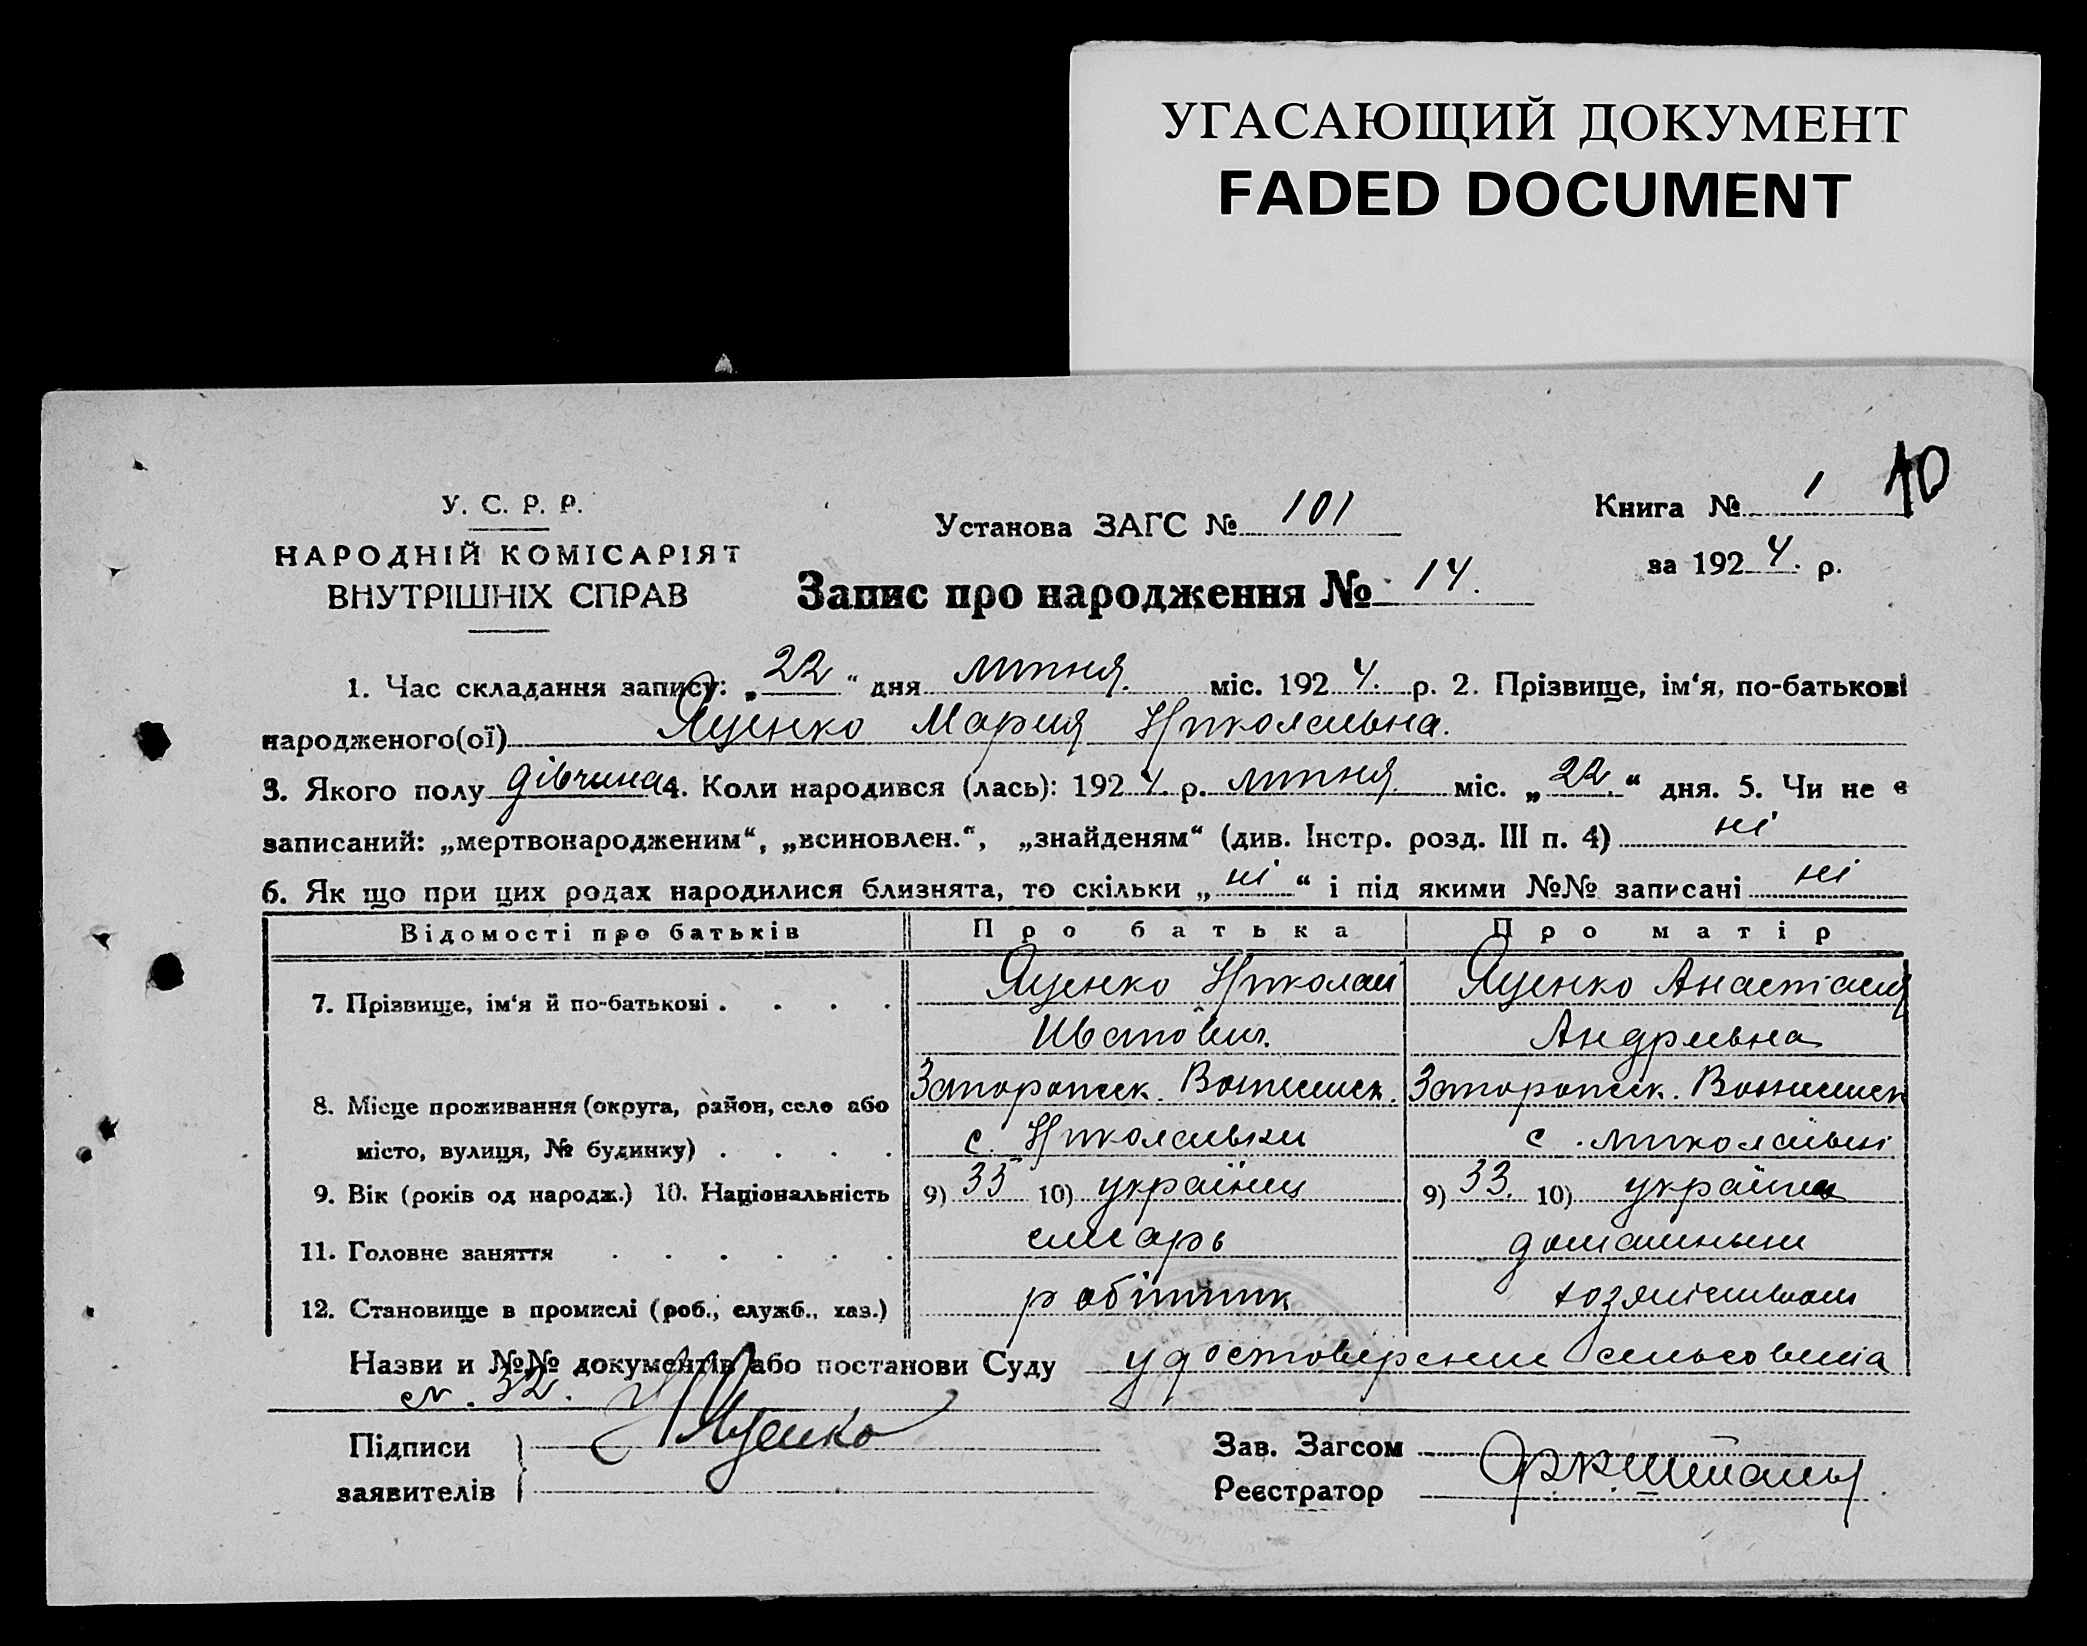 УГАСАЮЩИЙ ДОКУМЕНТ
FADED DOCUMENT
У. С. Р. Р.
НАРОДНІЙ КОМІСАРІЯТ
ВНУТРІШНІХ СПРАВ
Установа ЗАГС № 101
Запис про народження № 14.
Книга № 1 10
за 1924. р.
1. Час складання запису: „22“ дня липня. міс. 1924. р. 2. Прізвище, ім‘я, по-батькові
народженого(ої) Яценко Мария Николаивна.
3. Якого полу дівчина 4. Коли народився (лась): 1924. р. липня міс. „22.“ дня. 5. Чи не є
записаний: „мертвонародженим“, „всиновлен.“, „знайденям“ (див. Інстр. розд. III п. 4) ні
6. Як що при цих родах народилися близнята, то скільки „ні“ і під якими №№ записані ні
Відомості про батьків Про батька Про матір
7. Прізвище, ім‘я й по-батькові . . . . Яценко Николай Яценко Анастасия
Иванович. Андриевна
8. Місце проживання (округа, район, село або Запорожск. Запорожск.
місто, вулиця, № будинку) . . . . с. Николаивки с.
9. Вік (років од народж.) 10. Національність 9) 35 10) українец 9) 33. 10) українка
11. Головне заняття . . . . . . слесарь домашным
12. Становище в промислі (роб., служб., хаз.) робітник хозяйством
Назви и №№ документів або постанови Суду удостоверение
N. 32.
Підписи
заявителів } Яценко
Зав. Загсом
Реєстратор